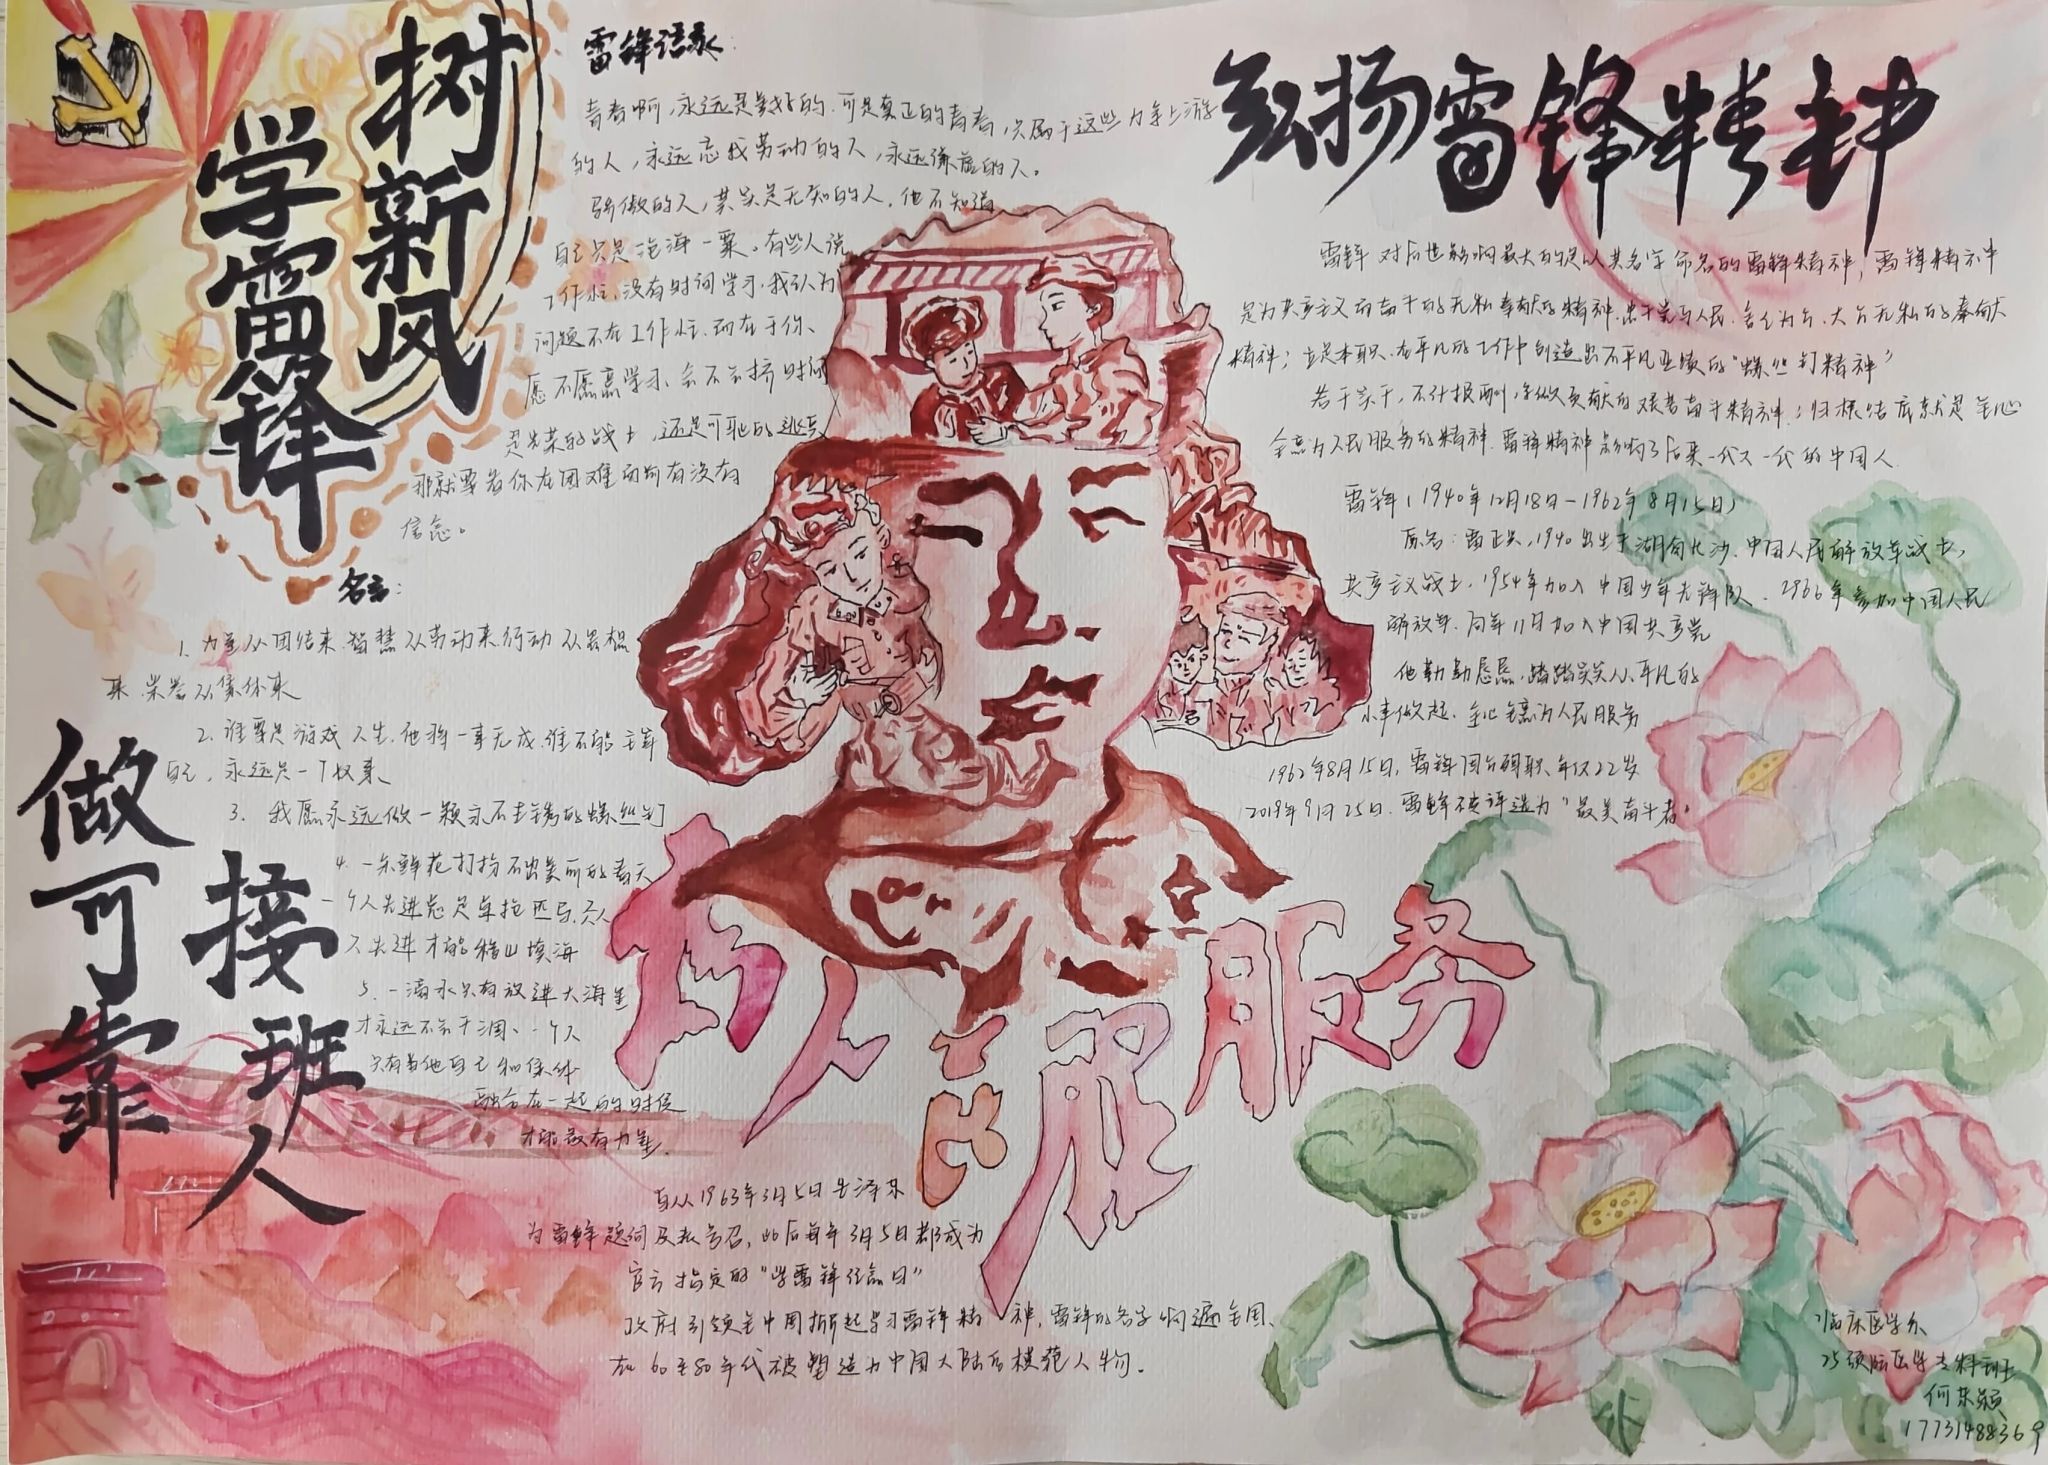 树新风
学雷锋
雷锋语录:
青春啊,永远是美好的.可是真正的青春,只属于这些力争上游
的人,永远忘我劳动的人,永远谦虚的人。
骄傲的人,其实是无知的人,他不知道
自己只是沧海一粟。有些人说
工作忙,没有时间学习,我认为
问题不在工作忙,而在于你、
愿不愿意学习、会不会挤时间
是光荣的战士,还是可耻的逃兵
那就要看你在困难面前有没有
信念。
名言:
1. 力量从团结来.智慧从劳动来.行动从思想
来.荣誉从集体来
2. 谁要是游戏人生.他将一事无成.谁不能主宰
自己,永远是一个奴隶
3. 我愿永远做一颗永不生锈的螺丝钉
4. 一朵鲜花打扮不出美丽的春天
一个人先进总是单枪匹马,众人
先进才能移山填海
5. 一滴水只有放进大海里
才永远不会干涸、一个人
只有当他自己和集体
融合在一起的时候
才能最有力量.
做可靠
接班人
弘扬雷锋精神
雷锋对后世影响最大的是以其名字命名的雷锋精神,雷锋精神
是为共产主义而奋斗的无私奉献的精神.忠于党与人民.舍己为公、大公无私的奉献
精神;立足本职、在平凡的工作中创造出不平凡业绩的“螺丝钉精神”
苦干实干,不计报酬,争做贡献的艰苦奋斗精神;归根结底就是全心
全意为人民服务的精神.雷锋精神影响了后来一代又一代的中国人.
雷锋(1940年12月18日-1962年8月15日)
原名:雷正兴,1940出生于湖南长沙.中国人民解放军战士,
共产主义战士,1954年加入中国少年先锋队、2966年参加中国人民
解放军.同年11月加入中国共产党
他勤勤恳恳,踏踏实实从平凡的
小事做起.全心全意为人民服务
1962年8月15日,雷锋因公殉职、年仅22岁
2019年9月25日.雷锋被评选为“最美奋斗者”
为人民服务
自从1963年3月5日毛泽东
为雷锋题词及发号召,此后每年3月5日都成为
官方指定的“学雷锋纪念日”
政府引领全中国掀起学习雷锋精神,雷锋的名字响遍全国、
在60至80年代被塑造为中国大陆的模范人物.
1921
临床医学系
25预防医学专科班
何东颖